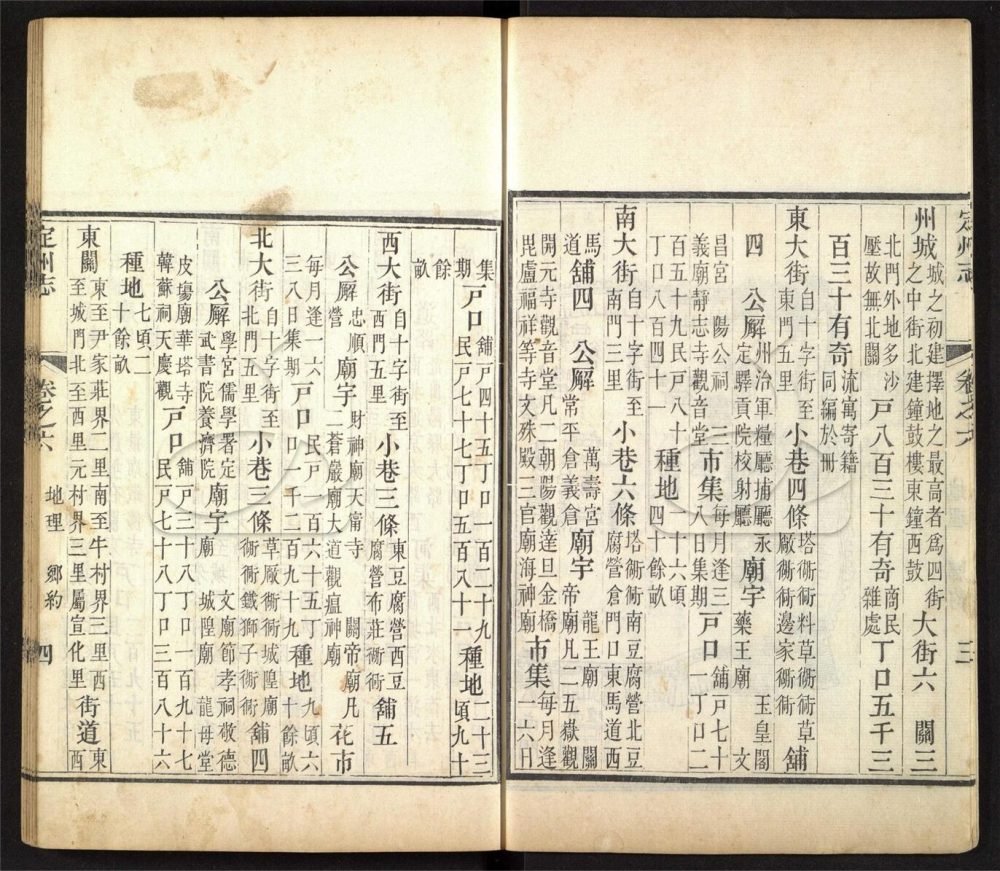 定州志 卷之六 三
州城 城之初建擇地之最高者爲四街之中街北建鐘鼓樓東鐘西鼓 大街六 關三
北門外地多沙壓故無北關 戸八百三十有奇 商民雜處 丁口五千三
百三十有奇 流寓寄籍同編於冊
東大街 自十字街至東門五里 小巷四條 塔衚衕料草衚衕草厰衚衕邊家衚衕 舖
四 公廨 州治軍糧廳捕廳永定驛貢院校射廳 廟宇 藥王廟 玉皇閣 文
昌宮 陽公祠 三義廟靜志寺觀音堂 市集 每月逢三八日集期 戸口 舖戸七十一丁口二
百五十九民戸八十丁口八百四十一 種地 一十六頃四十餘畝
南大街 自十字街至南門三里 小巷六條 塔衚衕南豆腐營北豆腐營倉門口東馬道西
馬道 舖四 公廨 萬壽宮常平倉義倉 廟宇 龍王廟 關帝廟凡二五嶽觀
開元寺觀音堂凡二朝陽觀達旦金橋毘盧福祥等寺文殊殿三官廟海神廟 市集 每月逢一六日
集期 戸口 舖戸四十五丁口一百二十九民戸七十七丁口五百八十一 種地 二十三頃九十
餘畝
西大街 自十字街至西門五里 小巷三條 東豆腐營西豆腐營布莊衚衕 舖五
公廨 忠順營 廟宇 財神廟天甯寺 關帝廟凡二蒼巖廟大道觀瘟神廟 花市
每月逢一六三八日集期 戸口 民戸一百六十五丁口一千二百九十九 種地 九頃六十餘畝
北大街 自十字街至北門五里 小巷三條 草厰衚衕城隍廟衚衕鐵獅子衚衕 舖四
公廨 學宮儒學署定武書院養濟院 廟宇 文廟節孝祠敬德廟 城隍廟 龍母堂
皮塲廟華塔寺韓蘇祠天慶觀 戸口 舖戸三十八丁口一百九十七民戸七十八丁口三百八十六
種地 七頃二十餘畝
東關 東至尹家莊界二里南至牛村界三里西至城門北至西里元村界三里屬宣化里 街道 東西
定州志 卷之六 地理 鄉約 四